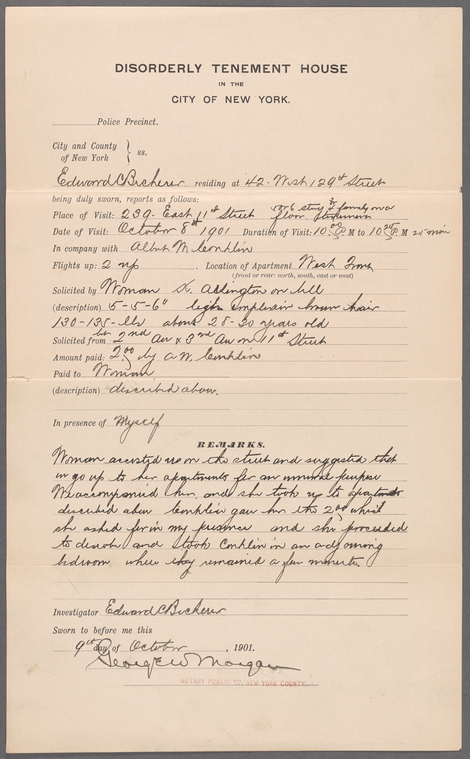 DISORDERLY TENEMENT HOUSE
IN THE
CITY OF NEW YORK.
Police Precinct.
City and County
of New York } ss.
Edward C Becherer residing at 42. West 129st Street
being duly sworn, reports as follows:
5 or 6 story 2 family on a
Place of Visit: 239. East 11st Street floor
Date of Visit: October 8th 1901 Duration of Visit: 10 00 P. M to 10 25 P. M 25 min
In company with Albert W Conklin
Flights up: 2 up Location of Apartment West Front
(front or rear: north, south, east or west)
Solicited by Woman K. Addington on bell
(description) 5-5-6" light complexion brown hair
130-135-lbs about 28-30 years old
Solicited from bet 2nd Av & 3rd Av on 11st Street
Amount paid: 2.00 by A.W. Conklin
Paid to Woman
(description) described above.
In presence of Myself
REMARKS.
Woman accosted us on the street and suggested that
we go up to her apartments for an immoral purpose
We accompanied her, and she took us to apartments
described above Conklin gave her the 2.00 which
she asked for in my presence and she proceeded
to disrobe and took Conklin in an adjoining
bedroom where they remained a few minutes
Investigator Edward C Becherer
Sworn to before me this
9th day of October , 1901.
George W Morgan
NOTARY PUBLIC NEW YORK COUNTY.